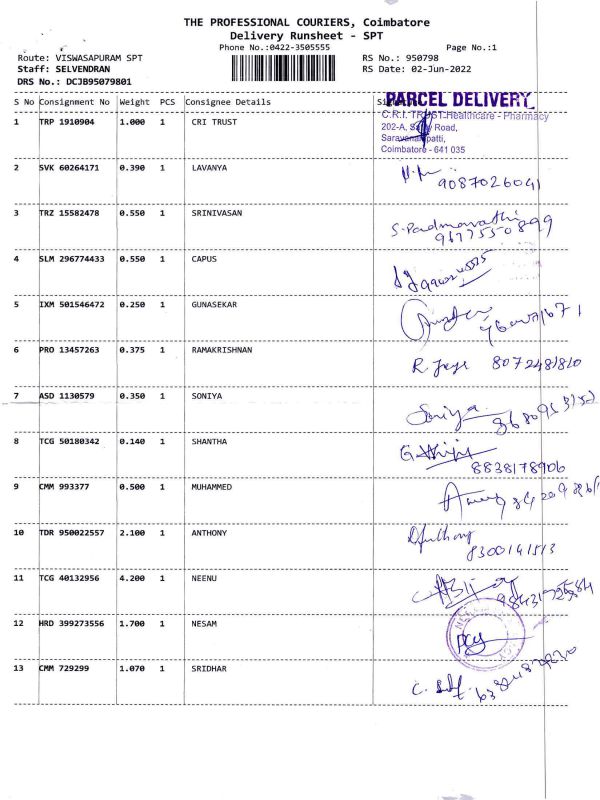 THE PROFESSIONAL COURIERS, Coimbatore
Delivery Runsheet - SPT
Phone No.:0422-3505555 Page No.:1
Route: VISWASAPURAM SPT RS No.: 950798
Staff: SELVENDRAN RS Date: 02-Jun-2022
DRS No.: DCJB95079801
S No Consignment No Weight PCS Consignee Details
PARCEL DELIVERY
C.R.I. TRUST-Healthcare - Pharmacy
1 TRP 1910904 1.000 1 CRI TRUST
202-A, Road,
Coimbatore - 641 035
2 SVK 60264171 0.390 1 LAVANYA
9087026041
3 TRZ 15582478 0.550 1 SRINIVASAN S. Padmavathi
9677550899
4 SLM 296774433 0.550 1 CAPUS
5 IXM 501546472 0.250 1 GUNASEKAR
6 PRO 13457263 0.375 1 RAMAKRISHNAN
R. 8072481810
7 ASD 1130579 0.350 1 SONIYA
Soniya
8 TCG 50180342 0.140 1 SHANTHA
8838178906
9 CMM 993377 0.500 1 MUHAMMED
10 TDR 950022557 2.100 1 ANTHONY
8300141513
11 TCG 40132956 4.200 1 NEENU
12 HRD 399273556 1.700 1 NESAM
13 CMM 729299 1.070 1 SRIDHAR